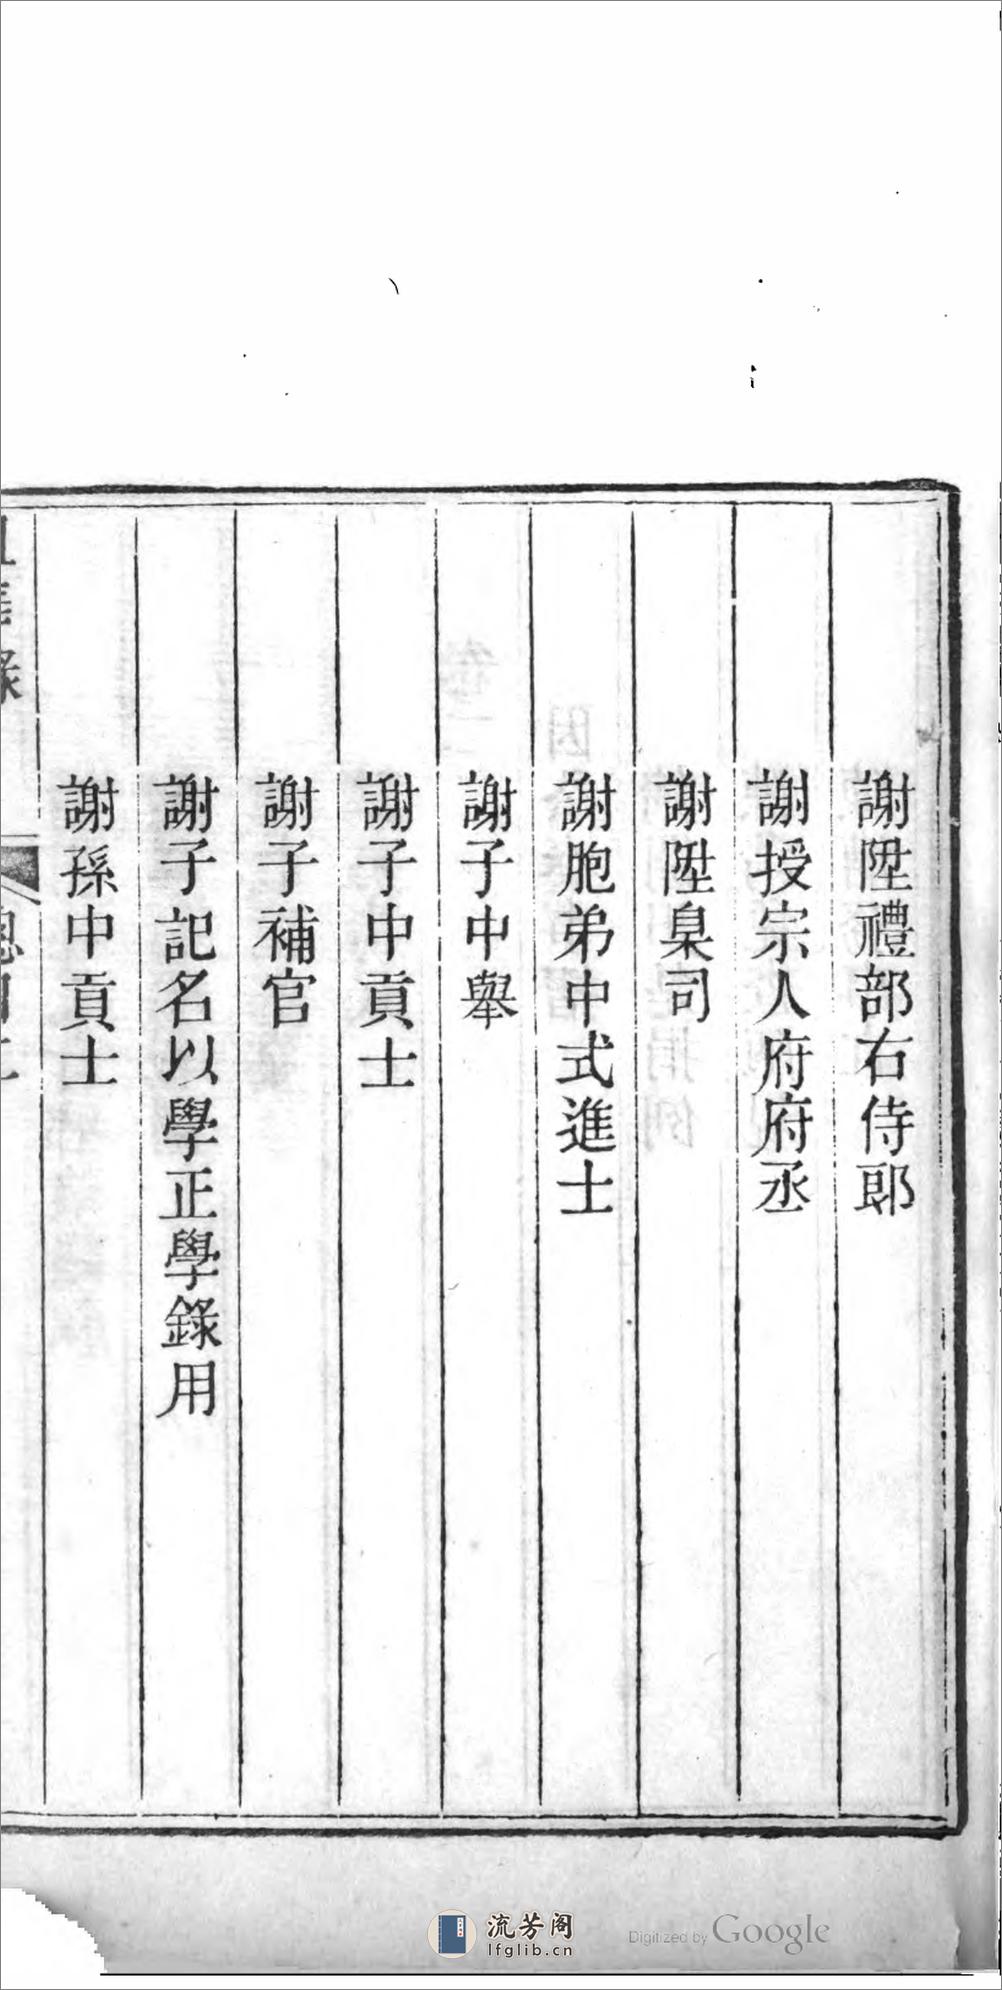 謝陞禮部右侍郎
謝授宗人府府丞
謝陞臬司
謝胞弟中式進士
謝子中舉
謝子中貢士
謝子補官
謝子記名以學正學錄用
謝孫中貢士
流芳阁
lfglib.cn
Digitized by Google